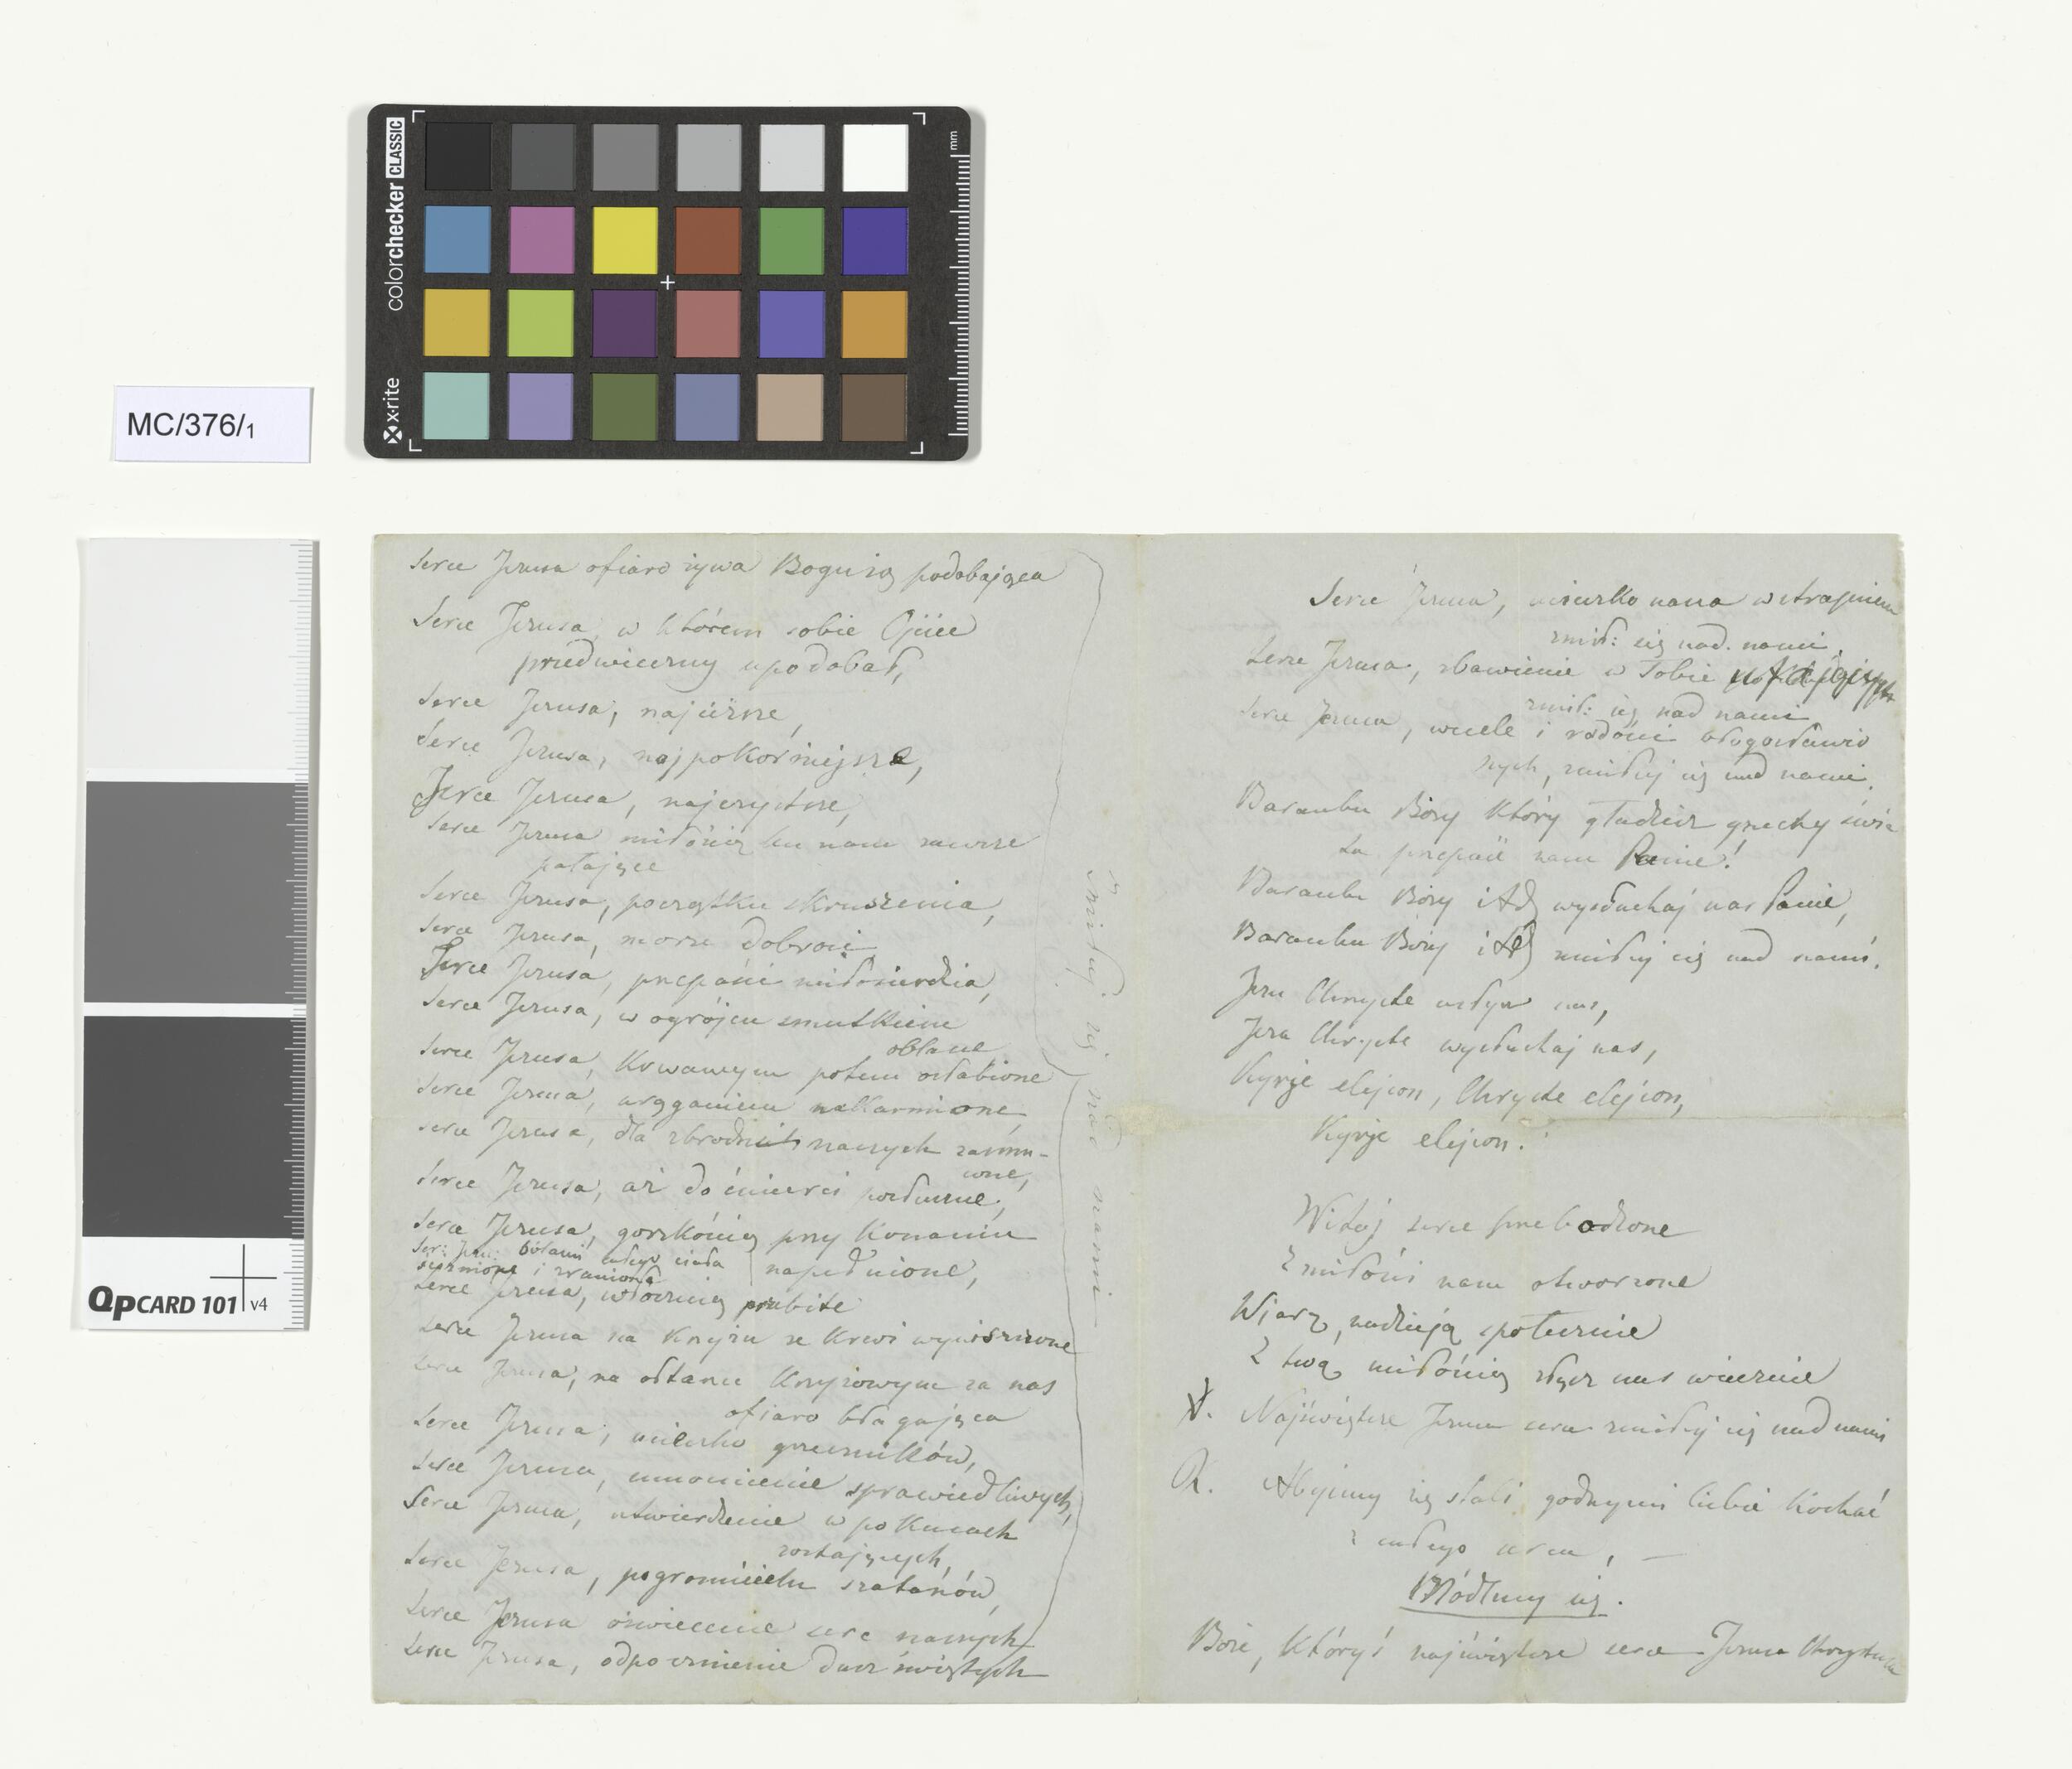 colorchecker CLASSIC
x-rite
mm
MC/376/1
QpCARD 101 v4
Serce Jezusa ofiaro żywa Bogu się podobająca
Serce Jezusa w którem sobie Ojciec
przedwieczny upodobał,
Serce Jezusa, najcichsze,
Serce Jezusa, najpokorniejsze,
Serce Jezusa, najczystsze,
Serce Jezusa miłością ku nam zawsze
pałające
Serce Jezusa, początku skruszenia,
Serce Jezusa, morze dobroci
Serce Jezusa, przepaści miłosierdzia,
Serce Jezusa, w ogrójcu smutkiem
oblane
Serce Jezusa, krwawym potem osłabione
Serce Jezusa, urąganiem nakarmione
Serce Jezusa, dla zbrodni naszych zasmu-
cone,
Serce Jezusa, aż do śmierci posłuszne,
Serce Jezusa, gorzkością przy konaniu
napełnione,
Ser: Jez: bólami całego ciała
i zranione
Serce Jezusa, włócznią przebite
Serce Jezusa na krzyżu ze krwi wyniszczone
Serce Jezusa, na ołtarzu krzyżowym za nas
ofiaro błagająca
Serce Jezusa, ucieczko grzeszników,
Serce Jezusa, umocnienie sprawiedliwych,
Serce Jezusa, utwierdzenie w pokusach
zostających,
Serce Jezusa, pogromicielu szatanów,
Serce Jezusa oświecenie serc naszych
Serce Jezusa, odpocznienie dusz świętych
zmiłuj się nad nami
Serce Jezusa, ucieczko nasza w utrapieniu
zmił: się nad. nami,
Serce Jezusa, zbawienie w Tobie ufających
zmił: się nad nami
Serce Jezusa, wesele i radości błogosławio
nych, zmiłuj się nad nami,
Baranku Boży który gładzisz grzechy świa
ta przepuść nam Panie!
Baranku Boży itd wysłuchaj nas Panie,
Baranku Boży itd zmiłuj się nad nami.
Jezu Chryste usłysz nas,
Jezu Chryste wysłuchaj nas,
Kyrje elejson, Chryste elejson,
Kyrje elejson.
Witaj serce przebodzone
Z miłości nam otworzone
Wiarą, nadzieją społecznie
Z twą miłością złącz nas wiecznie
V. Najświętsze Jezusa serce zmiłuj się nad nami
R. Abyśmy się stali godnymi Ciebie kochać
z całego serca, —
Módlmy się.
Boże, któryś najświętsze serce Jezusa Chrystusa